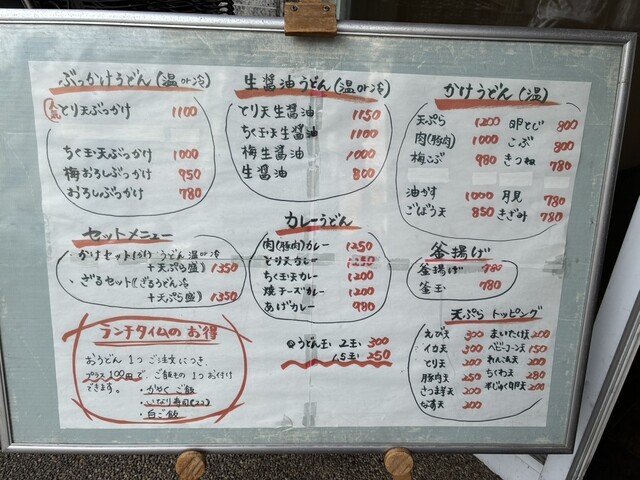 ぶっかけうどん(温or冷)
人気 とり天ぶっかけ 1100
ちく玉天ぶっかけ 1000
梅おろしぶっかけ 950
おろしぶっかけ 780
生醤油うどん(温or冷)
とり天生醤油 1150
ちく玉天生醤油 1100
梅生醤油 1000
生醤油 800
かけうどん(温)
天ぷら 1200 卵とじ 800
肉(豚肉) 1000 こぶ 800
梅こぶ 980 きつね 780
油かす 1000 月見 780
ごぼう天 850 きざみ 780
セットメニュー
・かけセット(かけうどん温or冷
+天ぷら盛) 1350
・ざるセット(ざるうどん冷
+天ぷら盛) 1350
カレーうどん
肉(豚肉)カレー 1250
とり天カレー 1250
ちく玉天カレー 1200
焼チーズカレー 1200
あげカレー 980
釜揚げ
釜揚げ 780
釜玉 780
ランチタイムのお得
おうどん1つご注文につき、
プラス100円で、ご飯もの1つお付け
できます。・かやくご飯
・いなり寿司(2コ)
・白ご飯
@うどん玉 2玉 300
1.5玉 250
天ぷらトッピング
えび天 300 まいたけ天 200
イカ天 300 ベビーコーン天 150
とり天 200 れんこん天 200
豚肉天 250 ちくわ天 280
さつま芋天 200 半じゅく卵天 200
なす天 200